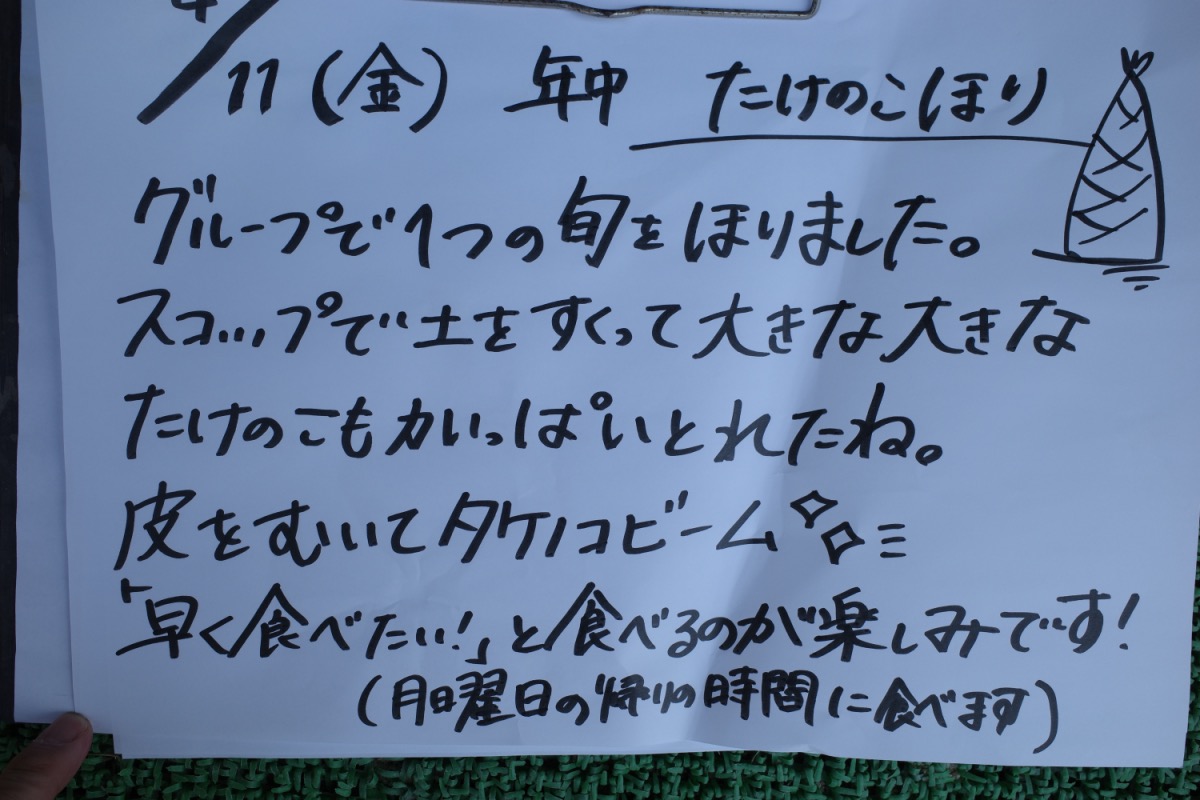 4/11(金) 年中 たけのこほり
グループで1つの旬をほりました。
スコップで土をすくって大きな大きな
たけのこもかいっぱいとれたね。
皮をむいてタケノコビーム
「早く食べたい!」と食べるのが楽しみです!
(月曜日の帰りの時間に食べます)